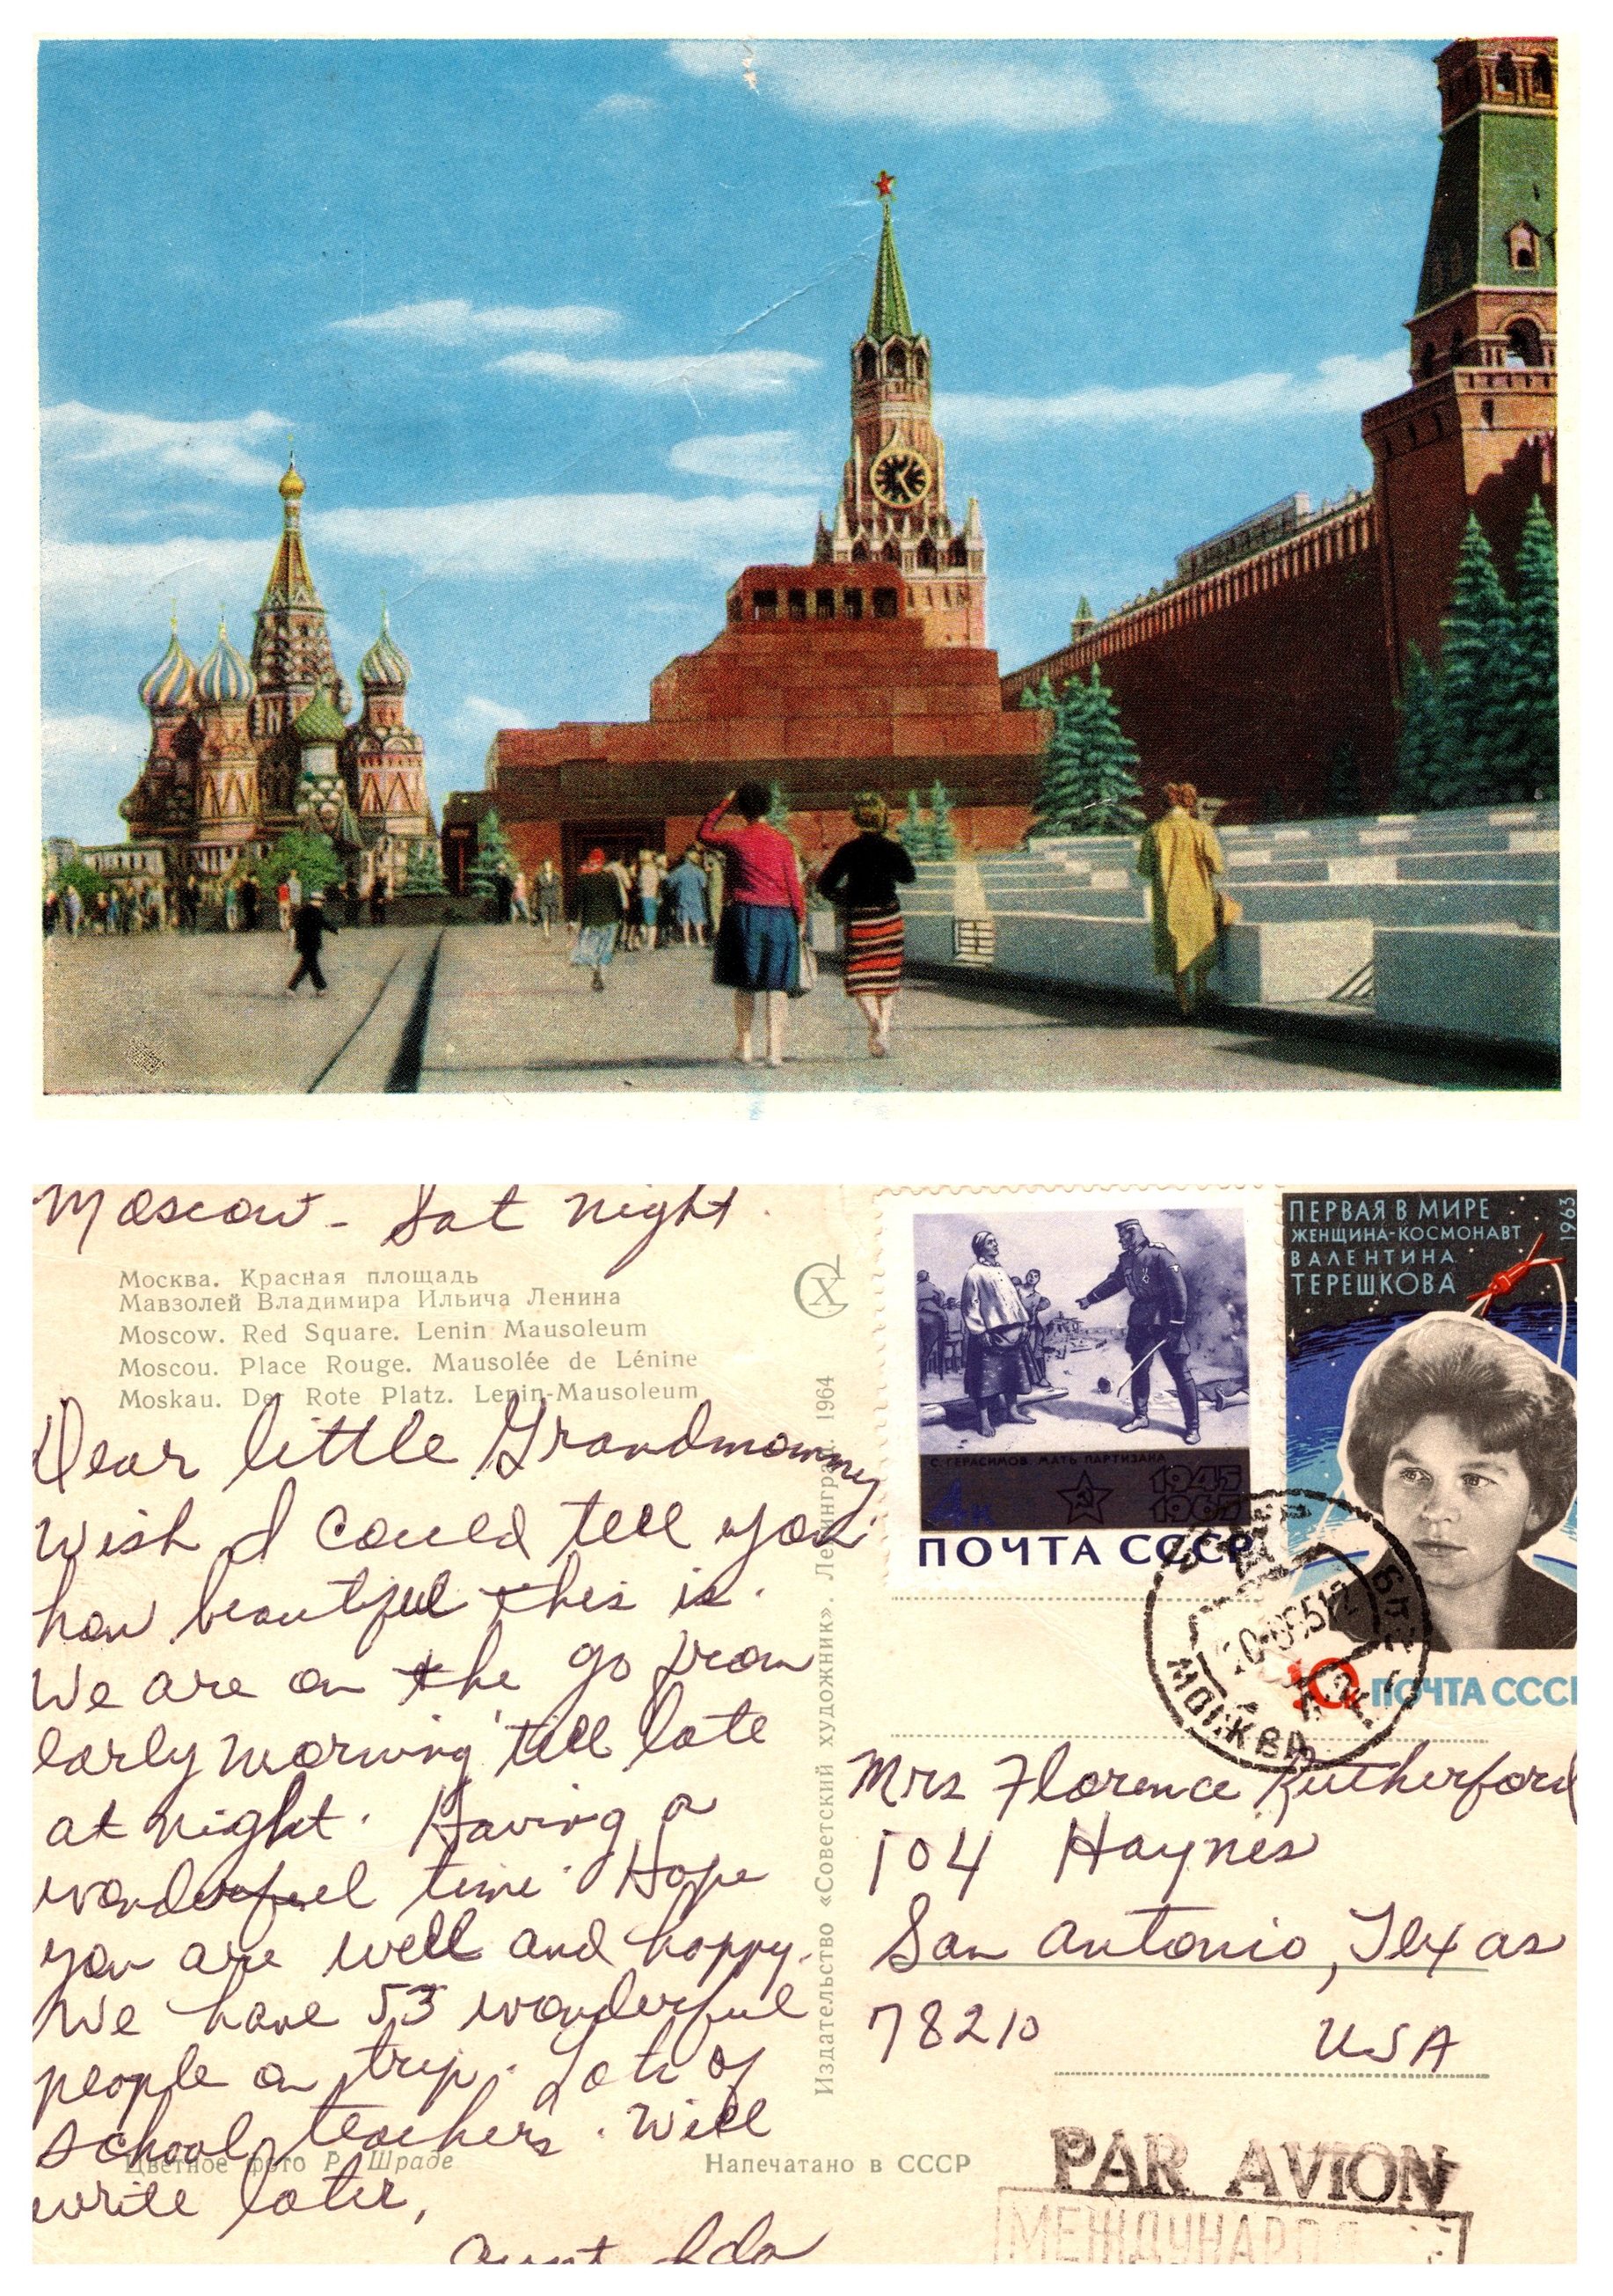 Moscow - Sat night.
Москва. Красная площадь
Мавзолей Владимира Ильича Ленина
Moscow. Red Square. Lenin Mausoleum
Moscou. Place Rouge. Mausolée de Lénine
Moskau. Der Rote Platz. Lenin-Mausoleum
Dear little Grandmommy
Wish I could tell you
how beautiful this is.
We are on the go from
early morning till late
at night. Having a
wonderful time. Hope
you are well and happy.
We have 53 wonderful
people on trip. Lots of
school teachers. Will
write later,
Aunt Ida
Цветное фото Р. Шраде
Напечатано в СССР
Издательство «Советский художник». Ленинград. 1964
СХ
С. ГЕРАСИМОВ. МАТЬ ПАРТИЗАНА
1945
1965
4к
ПОЧТА СССР
ПЕРВАЯ В МИРЕ
ЖЕНЩИНА-КОСМОНАВТ
ВАЛЕНТИНА
ТЕРЕШКОВА
1963
10
ПОЧТА СССР
МОСКВА
Mrs Florence Rutherford
104 Haynes
San Antonio, Texas
78210
USA
PAR AVION
МЕЖДУНАРО